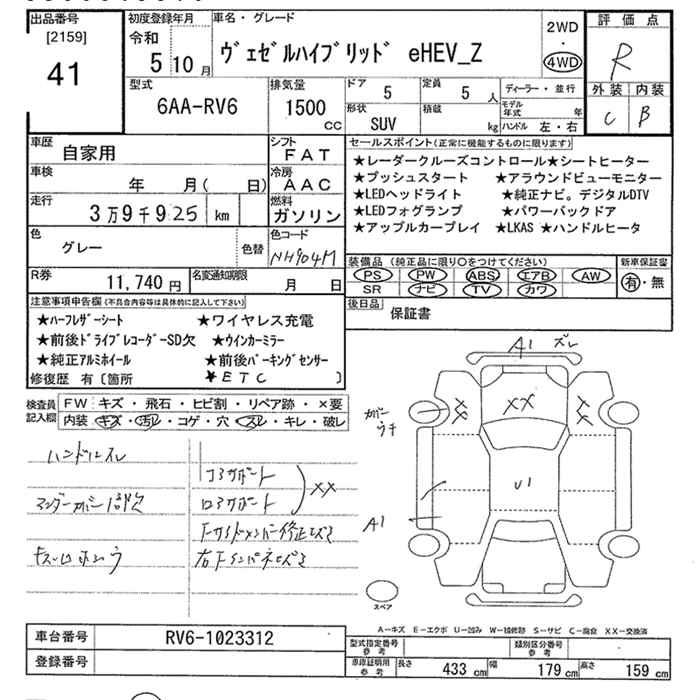 出品番号
[2159]
41
初度登録年月
令和
5 10 月
車名・グレード
ヴェゼルハイブリッド eHEV_Z
2WD
・
4WD
評価点
R
外装 内装
C B
型式
6AA-RV6
排気量
1500
CC
ドア
5
定員
5 人
形状
SUV
積載
kg
ディーラー・並行
モデル年式 年
ハンドル 左・右
車歴
自家用
シフト
FAT
車検
年 月( 日)
冷房
AAC
走行
3万9千925 km
燃料
ガソリン
色
グレー
色替
色コード
NH904M
R券
11,740 円
名変通知期限
月 日
セールスポイント(正常に機能するものに限ります)
★レーダークルーズコントロール★シートヒーター
★プッシュスタート ★アラウンドビューモニター
★LEDヘッドライト ★純正ナビ。デジタルDTV
★LEDフォグランプ ★パワーバックドア
★アップルカープレイ ★LKAS ★ハンドルヒータ
装備品(純正品に限り○をつけてください)
PS PW ABS エアB AW
SR ナビ TV カワ
新車保証書
有・無
後日品
保証書
注意事項申告欄(不具合内容等は具体的に記入して下さい)
★ハーフレザーシート ★ワイヤレス充電
★前後ドライブレコーダーSD欠 ★ウインカーミラー
★純正アルミホイール ★前後パーキングセンサー
修復歴 有〔箇所 ★ETC 〕
検査員記入欄
FW キズ・飛石・ヒビ割・リペア跡・×要
内装 キズ・汚レ・コゲ・穴・スレ・キレ・破レ
ハンドルスレ
コアサポート
ロアサポート
XX
アンダーカバー
A1 ズレ
カバー
ウチ
XX
XX
XX
U1
A1
スペア
A-キズ E-エクボ U-凹み W-補修跡 S-サビ C-腐食 XX-交換済
車台番号
RV6-1023312
登録番号
型式指定番号
参考
類別区分番号
参考
車庫証明用
参考
長さ 433 cm 幅 179 cm 高さ 159 cm